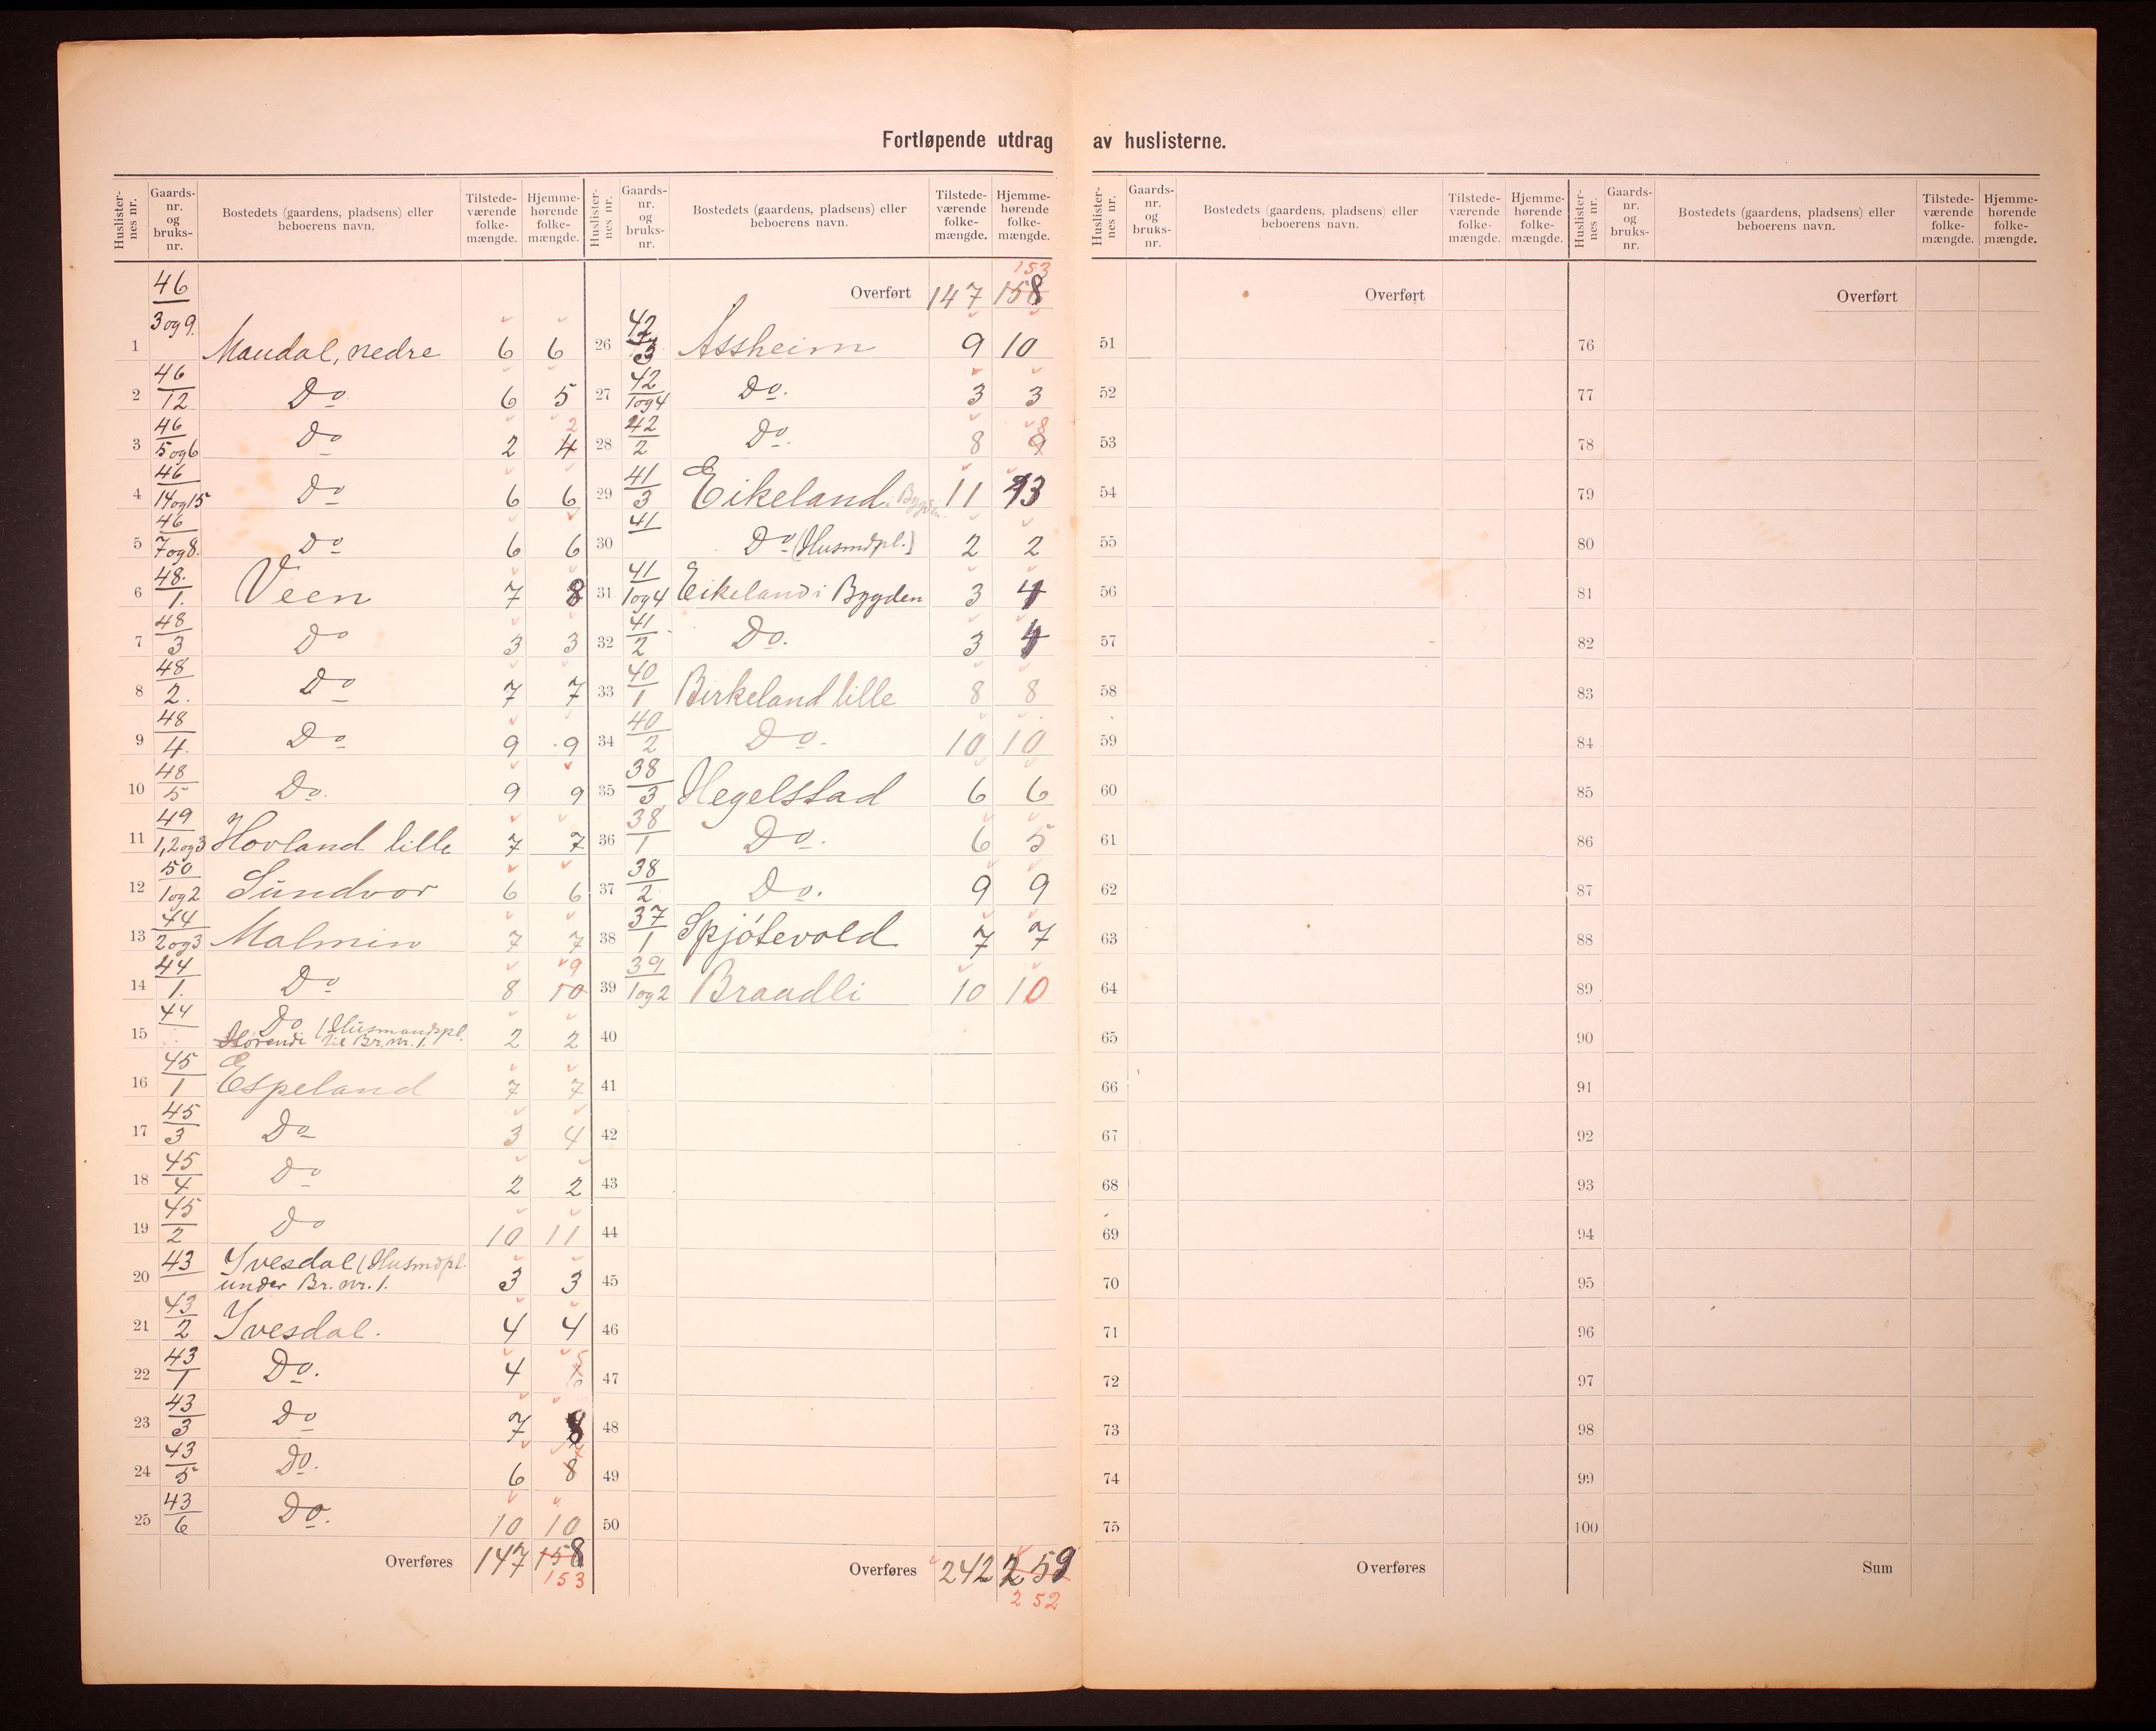 Fortløpende utdrag av huslisterne.
Huslisternes nr. Gaards-nr. og bruks-nr. Bostedets (gaardens, pladsens) eller beboerens navn. Tilstede-værende folke-mængde. Hjemme-hørende folke-mængde.
1 46/3og9. Maudal, nedre 6 6
2 46/12 Do 6 5
3 46/5og6 Do 2 4 2
4 46/14og15 Do 6 6
5 46/7og8. Do 6 6
6 48./1. Veen 7 8
7 48/3 Do 3 3
8 48/2. Do 7 7
9 48/4. Do 9 9
10 48/5 Do. 9 9
11 49/1,2og3 Hovland lille 7 7
12 50/1og2 Sundvor 6 6
13 44/2og3 Malmin 7 7
14 44/1. Do 8 10 9
15 44 Do (Husmandspl.
til Br.nr. 1. 2 2
16 45/1 Espeland 7 7
17 45/3 Do 3 4
18 45/4 Do 2 2
19 45/2 Do 10 11
20 43 Yvesdal (Husmdpl.
under Br. nr. 1. 3 3
21 43/2 Yvesdal. 4 4
22 43/1 Do. 4 5
23 43/3 Do 7 8
24 43/5 Do. 6 8 7
25 43/6 Do. 10 10
Overføres 147 158
153
Huslisternes nr. Gaards-nr. og bruks-nr. Bostedets (gaardens, pladsens) eller beboerens navn. Tilstede-værende folke-mængde. Hjemme-hørende folke-mængde.
153
Overført 147 158
26 42/3 Assheim 9 10
27 42/1og4 Do. 3 3
28 42/2 Do. 8 9 8
29 41/3 Eikeland i Bygden 11 13
30 41 Do (Husmdpl.) 2 2
31 41/1og4 Eikeland i Bygden 3 4
32 41/2 Do. 3 4
33 40/1 Birkeland lille 8 8
34 40/2 Do. 10 10
35 38/3 Hegelstad 6 6
36 38/1 Do. 6 5
37 38/2 Do. 9 9
38 37/1 Spjótevold 7 7
39 39/1og2 Braadli 10 10
40
41
42
43
44
45
46
47
48
49
50
Overføres 242 259
252
Huslisternes nr. Gaards-nr. og bruks-nr. Bostedets (gaardens, pladsens) eller beboerens navn. Tilstede-værende folke-mængde. Hjemme-hørende folke-mængde.
Overført
51
52
53
54
55
56
57
58
59
60
61
62
63
64
65
66
67
68
69
70
71
72
73
74
75
Overføres
Huslisternes nr. Gaards-nr. og bruks-nr. Bostedets (gaardens, pladsens) eller beboerens navn. Tilstede-værende folke-mængde. Hjemme-hørende folke-mængde.
Overført
76
77
78
79
80
81
82
83
84
85
86
87
88
89
90
91
92
93
94
95
96
97
98
99
100
Sum